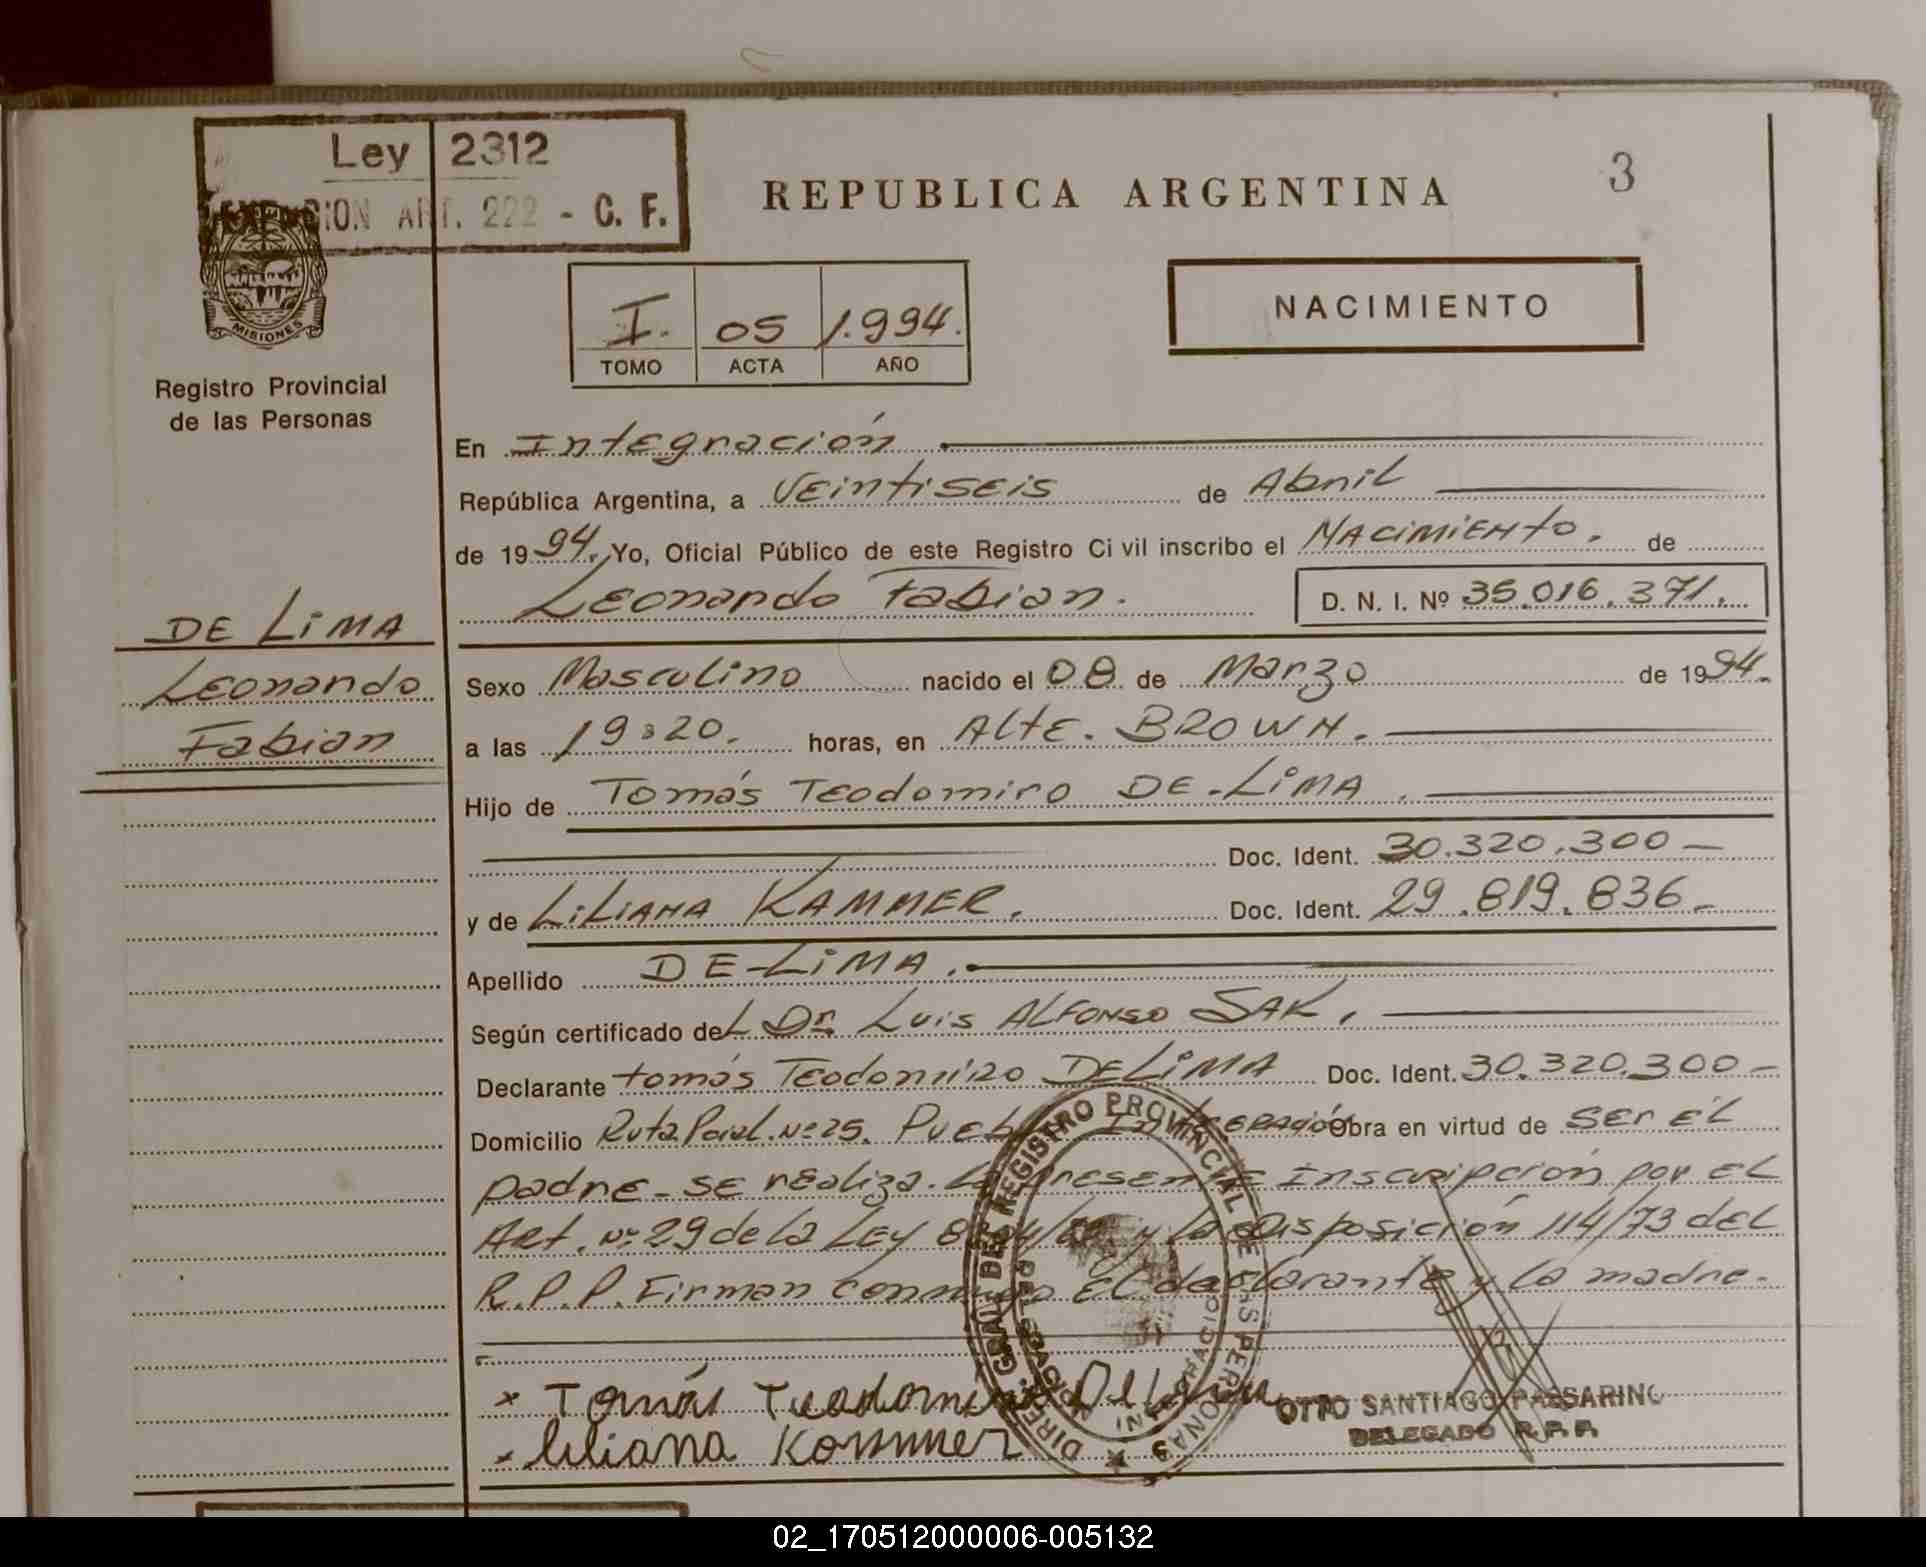 Ley 2312
ART. 222 - C. F.
REPUBLICA ARGENTINA
3
MISIONES
Registro Provincial
de las Personas
I. 05 1.994.
TOMO ACTA AÑO
NACIMIENTO
En Integración.
República Argentina, a Veintiseis de Abril
de 1994. Yo, Oficial Público de este Registro Ci vil inscribo el Nacimiento. de
Leonardo Fabian. D. N. I. Nº 35.016.371.
DE LiMA
Leonardo
Fabian
Sexo Masculino nacido el 08 de Marzo de 1994.
a las 19:20. horas, en Alte. BROWN.
Hijo de Tomás Teodomiro DE-LiMA.
Doc. Ident. 30.320.300
y de LiLiANA KAMMER. Doc. Ident. 29.819.836-
Apellido DE-LiMA.
Según certificado del Dr. Luis ALFONSO SAK.
Declarante tomás Teodomiro DE LiMA Doc. Ident. 30.320.300-
Domicilio Ruta Pcial. Nº 25. Obra en virtud de ser él
padre- se realiza la presente Inscripción por el
Art. Nº 29 de la Ley y la Disposición 114/73 del
R.P.P. Firman conmigo el declarante y la madre.
x Tomás Teodomiro De Lima
x liliana Kommer
DIREC. GRAL. DEL REGISTRO PROVINCIAL DE LAS PERSONAS
OTTO SANTIAGO PASSARINO
DELEGADO R.P.P.
02_170512000006-005132